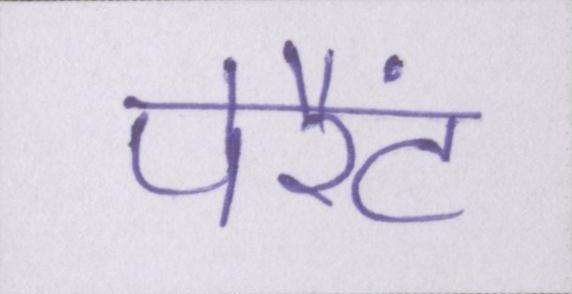 पेरैंट